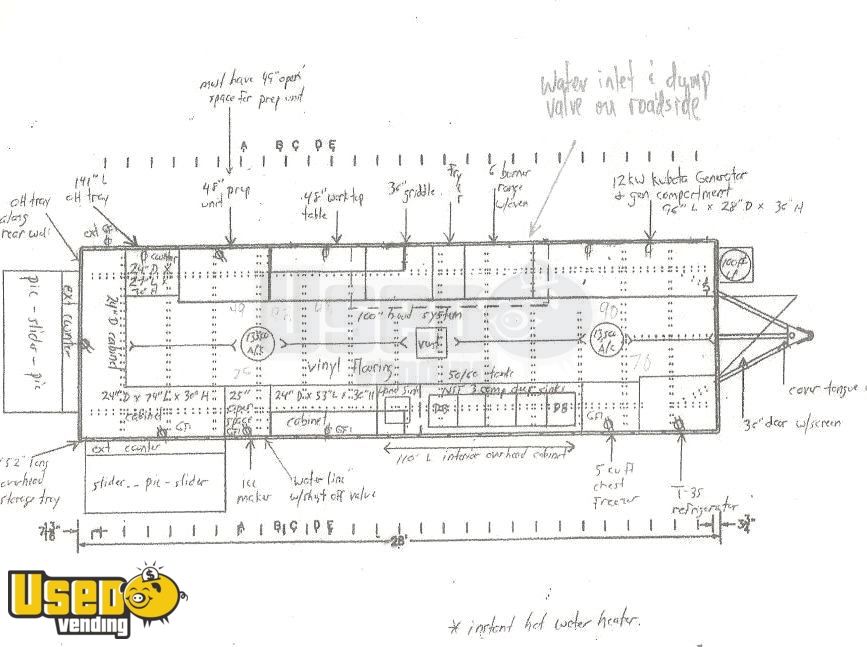 must have 49" open
space for prep unit
Water inlet & dump
valve on roadside
A B C D E
141" L
OH tray
OH tray
along
rear wall
ext GFI
48" prep
unit
48" work top
table
36" griddle
Fryer
6 burner
range
w/oven
12kw Kubota Generator
& gen compartment
96" L x 28" D x 36" H
pic-slider-pic
ext counter
24" D cabinet
counter
24" D x
30" H
100" hood system
13500
A/C
vent
13500
A/C
90
vinyl flooring
50/60 tanks
70
24" D x 79" L x 30" H
cabinet
25"
open
space
24" D x 53" L x 30" H
cabinet
Hand sink
NSF 3 comp dup sinks
DB
DB
GFI
GFI
GFI
GFI
cover tongue
36" door w/screen
52" long
overhead
storage tray
ext counter
slider - pic - slider
Ice
maker
water line
w/shut off valve
110" L interior overhead cabinet
5 cu ft
chest
freezer
T-35
refrigerator
A B C D E
7 13/16"
28'
3 3/4"
* instant hot water heater.
USED
vending